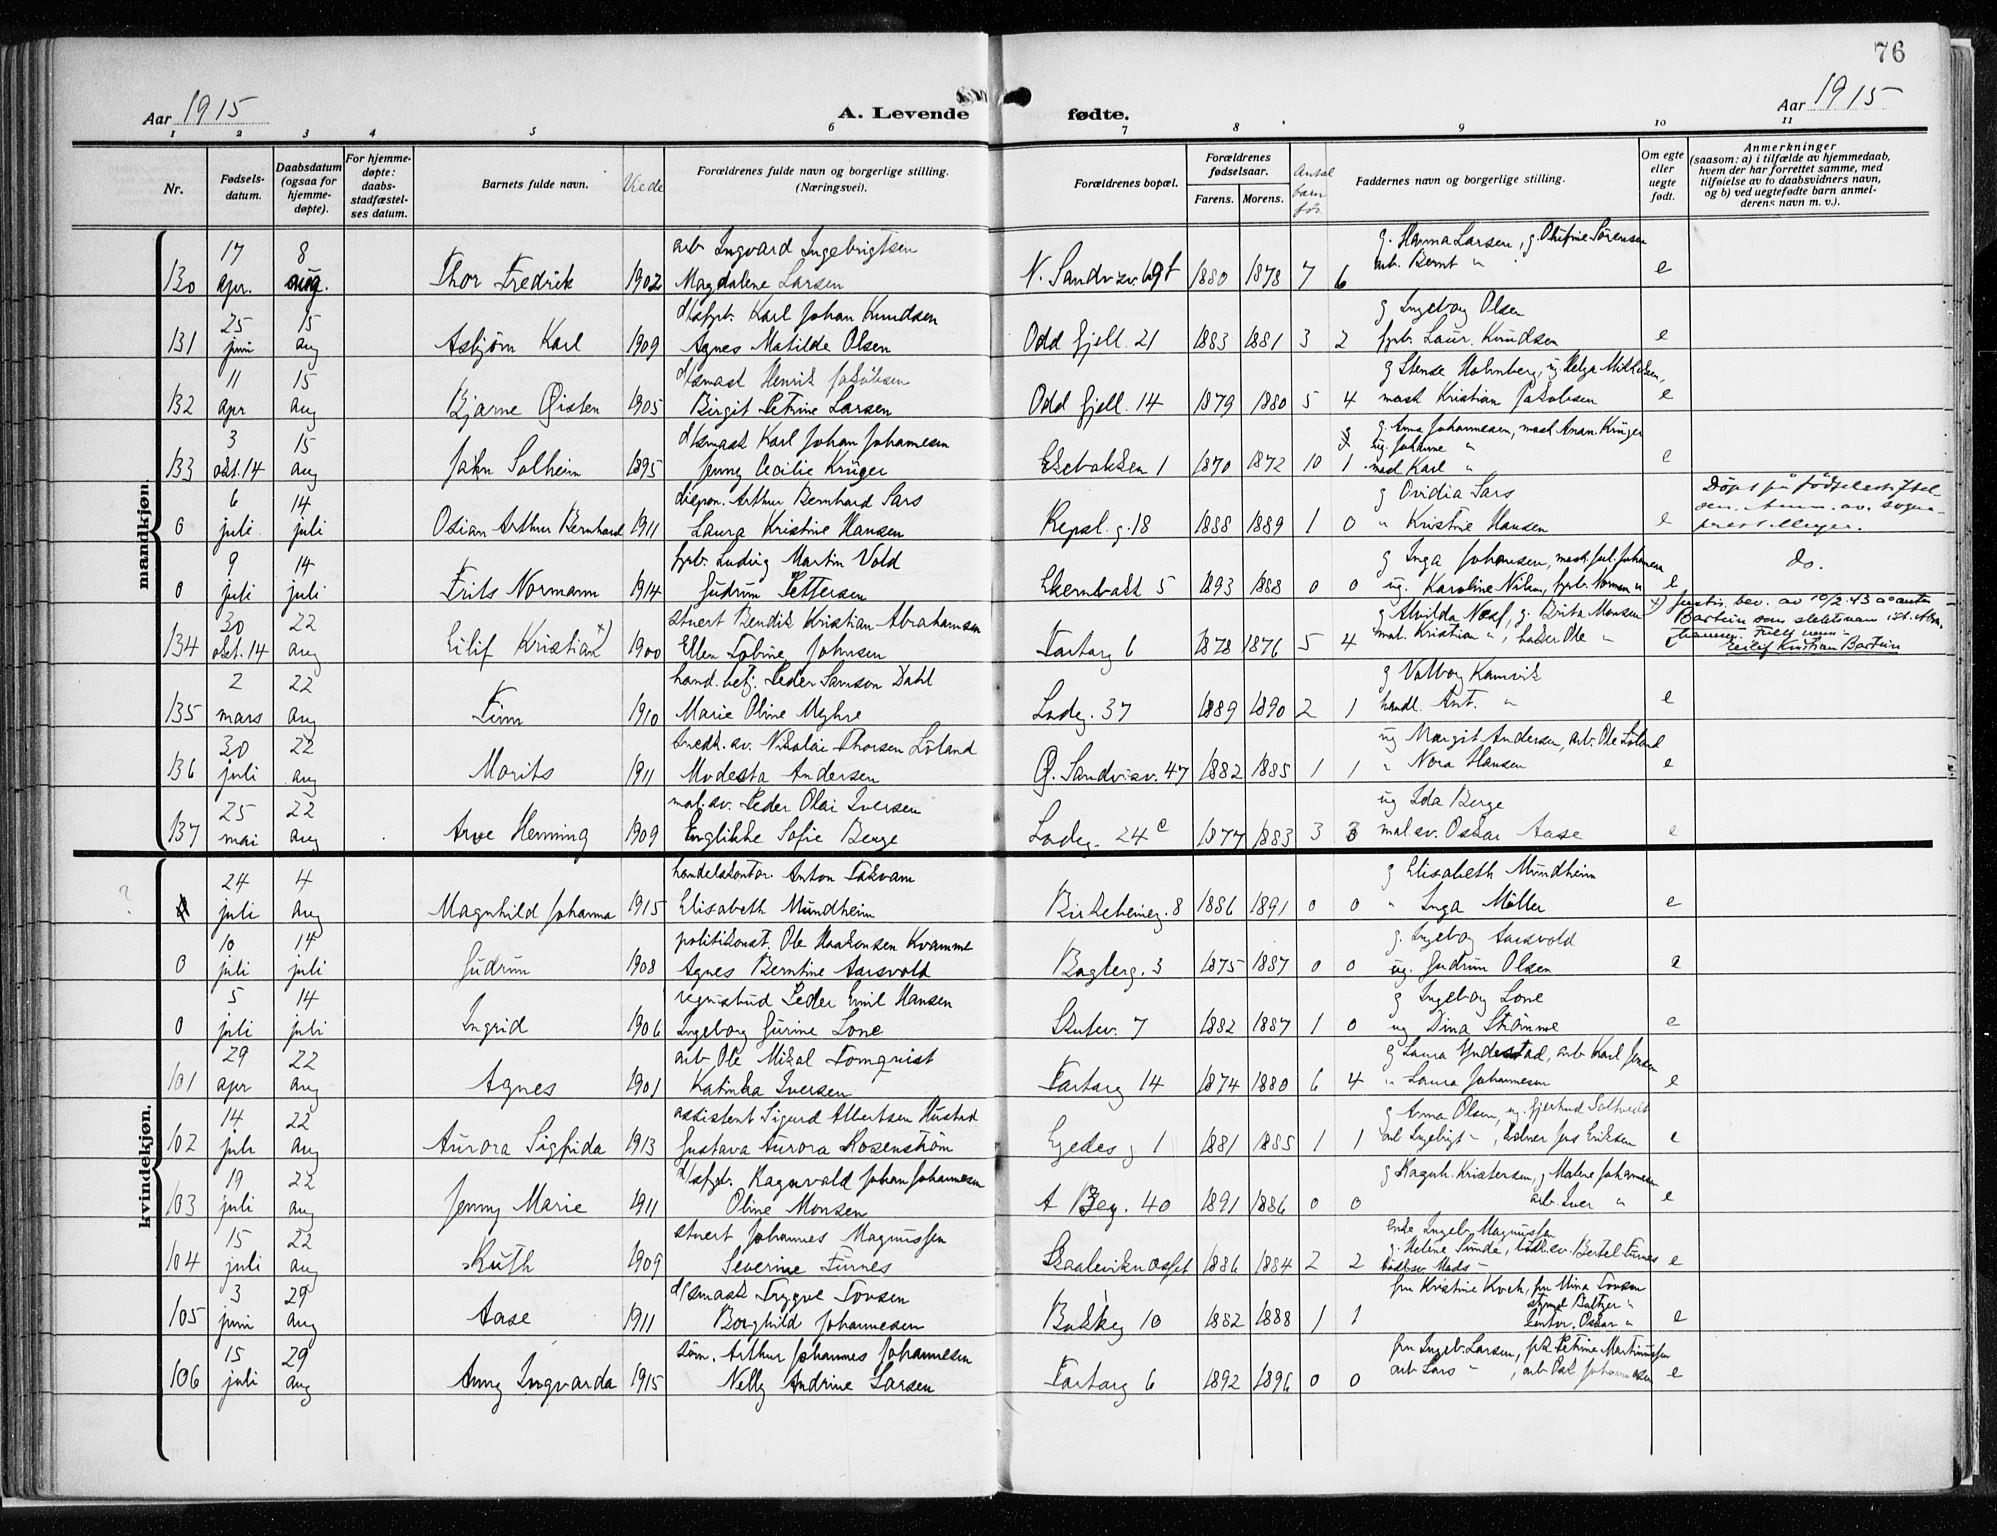 76
Aar 1915 A. Levende fødte. Aar 1915
1 2 3 4 5 6 7 8 9 10 11
Nr.
Fødsels-
datum.
Daabsdatum
(ogsaa for
hjemme-
døpte).
For hjemme-
døpte:
daabs-
stadfæstel-
ses datum.
Barnets fulde navn.
Viede
Forældrenes fulde navn og borgerlige stilling.
(Næringsvei).
Forældrenes bopæl.
Forældrenes
fødselsaar.
Farens. Morens.
Antal
barn
før
Faddernes navn og borgerlige stilling.
Om egte
eller
uegte
født.
Anmerkninger
(saasom: a) i tilfælde av hjemmedaab,
hvem der har forrettet samme, med
tilføielse av to daabsvidners navn,
og b) ved uegtefødte barn anmel-
derens navn m. v.).
mandkjøn.
17 8 arb Ingvard Ingebrigtsen g. Hanna Larsen, g. Sørensen
130 apr. aug. Thor Fredrik 1902 Magdalene Larsen N. Sandvizv. 69f 1880 1878 7 6 arb. Bernt " e
25 15 Karl Johan Knudsen g Ingeborg Olsen
131 juni aug Asbjørn Karl 1909 Agnes Matilde Olsen Odd fjell. 21 1883 1881 3 2 fyrb. Laur. Knudsen e
11 15 d/smask Henrik Jakobsen g Stense Holmberg, ug Helga Mikkelsen,
132 apr aug Bjarne Øisten 1905 Birgit Petrine Larsen Odd fjell. 14 1879 1880 5 4 mask Kristian Jakobsen e
3 15 d/smask Karl Johan Johannesen g. Anna Johannesen, mask Anan. Krüger
ug. Johanne "
133 okt. 14 aug John Solheim 1895 Jenny Cecilie Krüger 1 1870 1872 10 1 mask Karl " e
6 14 Arthur Bernhard Sars g Ovidia Sars Døpt på fødselsstiftel-
sen. Anm. av. sogne-
0 juli juli Osian Arthur Bernhard 1911 Laura Kristine Hansen Repsl. g. 18 1888 1889 1 0 " Kristine Hansen e prest Meyer.
9 14 fyrb. Ludvig Martin Vold g Inga Johansen, mask Jul. Johansen do.
0 juli juli Frits Normann 1914 Gudrun Pettersen 5 1893 1888 0 0 ug. Karoline Nilsen, fyrb. Norman " e
30 22 stuert Bendik Kristian Abrahamsen g Alvilda Næss, g. Brita Monsen x) Justis. bev. av 10/2.43 å anta
Bartun som slektsnavn i st. Abra-
134 okt. 14 aug Eilif Kristian x) 1900 Ellen Tobine Johnsen Tartarg 6 1878 1876 5 4 mat. Kristian ", Ole " e hamsen. Fullt navn:
Eilif Kristian Bartun
2 22 hand. betj. Peder Samson Dahl g Valborg Kamvik
135 mars aug Finn 1910 Marie Oline Myhre Ladeg. 37 1889 1890 2 1 handl. Ant. " e
30 22 snedk. sv. Nikolai Thorsen Løland ug Margit Andersen, arb. Ole Løland
136 juli aug Morits 1911 Modesta Andersen Ø. Sandvizv. 47 1882 1885 1 1 " Nora Hansen e
25 22 mal. sv. Peder Olai Iversen ug Ida Berge
137 mai aug Arve Henning 1909 Englikke Sofie Berge Ladeg. 24c 1877 1883 3 3 mal sv. Oskar Aase e
kvindekjøn.
24 4 handelskontor. Anton Takvam g Elisabeth Mundheim
? juli aug Magnhild Johanna 1915 Elisabeth Mundheim Birkebeinerg. 8 1886 1891 0 0 " Inga Møller e
10 14 politikonst. Ole Haakonsen Kvamme g. Ingeborg Aarsvold
0 juli juli Gudrun 1908 Agnes Berntine Aarsvold Baglerg. 3 1875 1887 0 0 ug. Gudrun Olsen e
5 14 Peder Emil Hansen g Ingeborg Lone
0 juli juli Ingrid 1906 Ingeborg Gurine Lone Skutev. 7 1882 1887 1 0 ug Dina Strømme e
29 22 arb Ole Mikal Tornqvist g Laura Yndestad, arb Karl Jensen
101 apr aug Agnes 1901 Katinka Iversen Tartarg 14 1874 1880 6 4 " Laura Johannesen e
14 22 assistent Sigurd Albertsen Hustad g Anna Olsen, ug. Gjertrud Soltvedt
102 juli aug Aurora Sigfrida 1913 Gustava Aurora Rosenstrøm Egedes g 1 1881 1885 1 1 arb Ingebrigt ", Jens Eriksen e
19 22 Ragnvald Johan Johannesen g Ragnh. Kristensen, g Malene Johannesen
103 juli aug Jenny Marie 1911 Oline Monsen A Beg. 40 1891 1886 0 0 arb. Iver " e
15 22 stuert Johannes Magnussen enke Ingeb. Magnussen
g. Helene Sunde, bødk.sv. Bertel Furnes
104 juli aug Ruth 1909 Severine Furnes 1886 1884 2 2 bødksv. Mads " e
3 29 d/smask Trygve Tovsen fru Kristine Kveh, fru Mina Tovsen
styrmd Baltzer "
105 juni aug Aase 1911 Borghild Johannesen Bakkeg 10 1882 1888 1 1 kontor. Oskar " e
15 29 søm. Arthur Johannes Johannesen fru Ingeb. Larsen, frk Petrine Martinussen
106 juli aug Anny Ingvarda 1915 Nelly Andrine Larsen Tartarg 6 1892 1896 0 0 arb Lars ", arb Osk Johannesen e